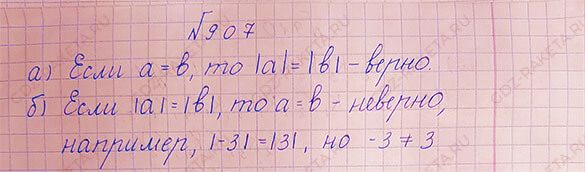 №907
а) Если a = b, то |a| = |b| - верно.
б) Если |a| = |b|, то a = b - неверно,
например, |-3| = |3|, но -3 ≠ 3